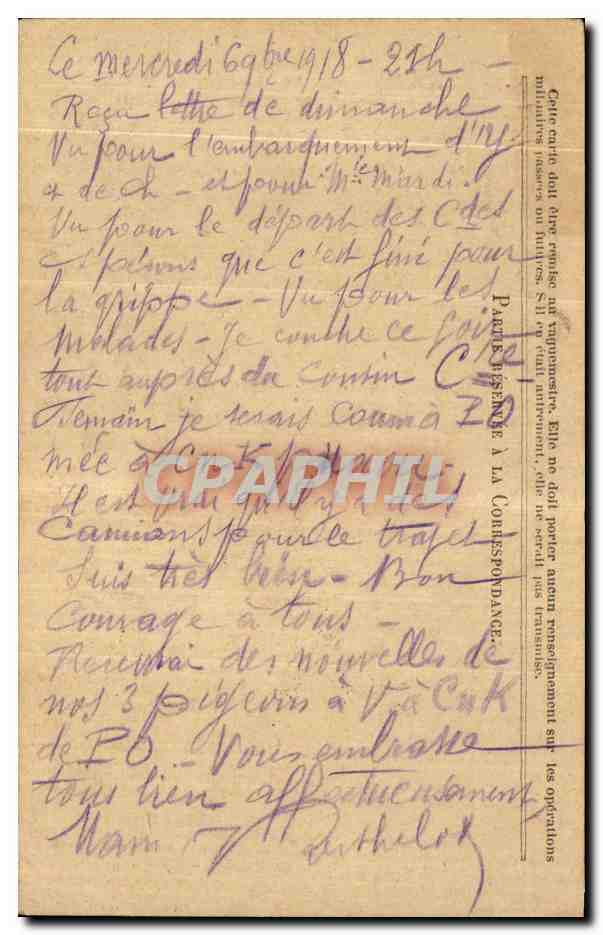 Ce mercredi 6 9bre 1918 - 21h -
Reçu lettre de dimanche
Vu pour l'embarquement d'Y
et de Ch - et pour Mlle Mardi.
Vu pour le départ des Cdes
Espérons que c'est fini pour
la grippe - Vu pour les
malades - Je couche ce soir
tout auprès du cousin
Demain je serais
mée à CuK
Il est vrai qu'il y a des
camions pour le trajet -
Suis très bien - Bon
courage à tous -
des nouvelles de
nos 3 pigeons à V. à CuK
de PO - Vous embrasse
tous bien affectueusement
Berthelot
PARTIE RÉSERVÉE À LA CORRESPONDANCE.
Cette carte doit être remise au vaguemestre. Elle ne doit porter aucun renseignement sur les opérations
militaires passées ou futures. S'il en était autrement, elle ne serait pas transmise.
CPAPHIL